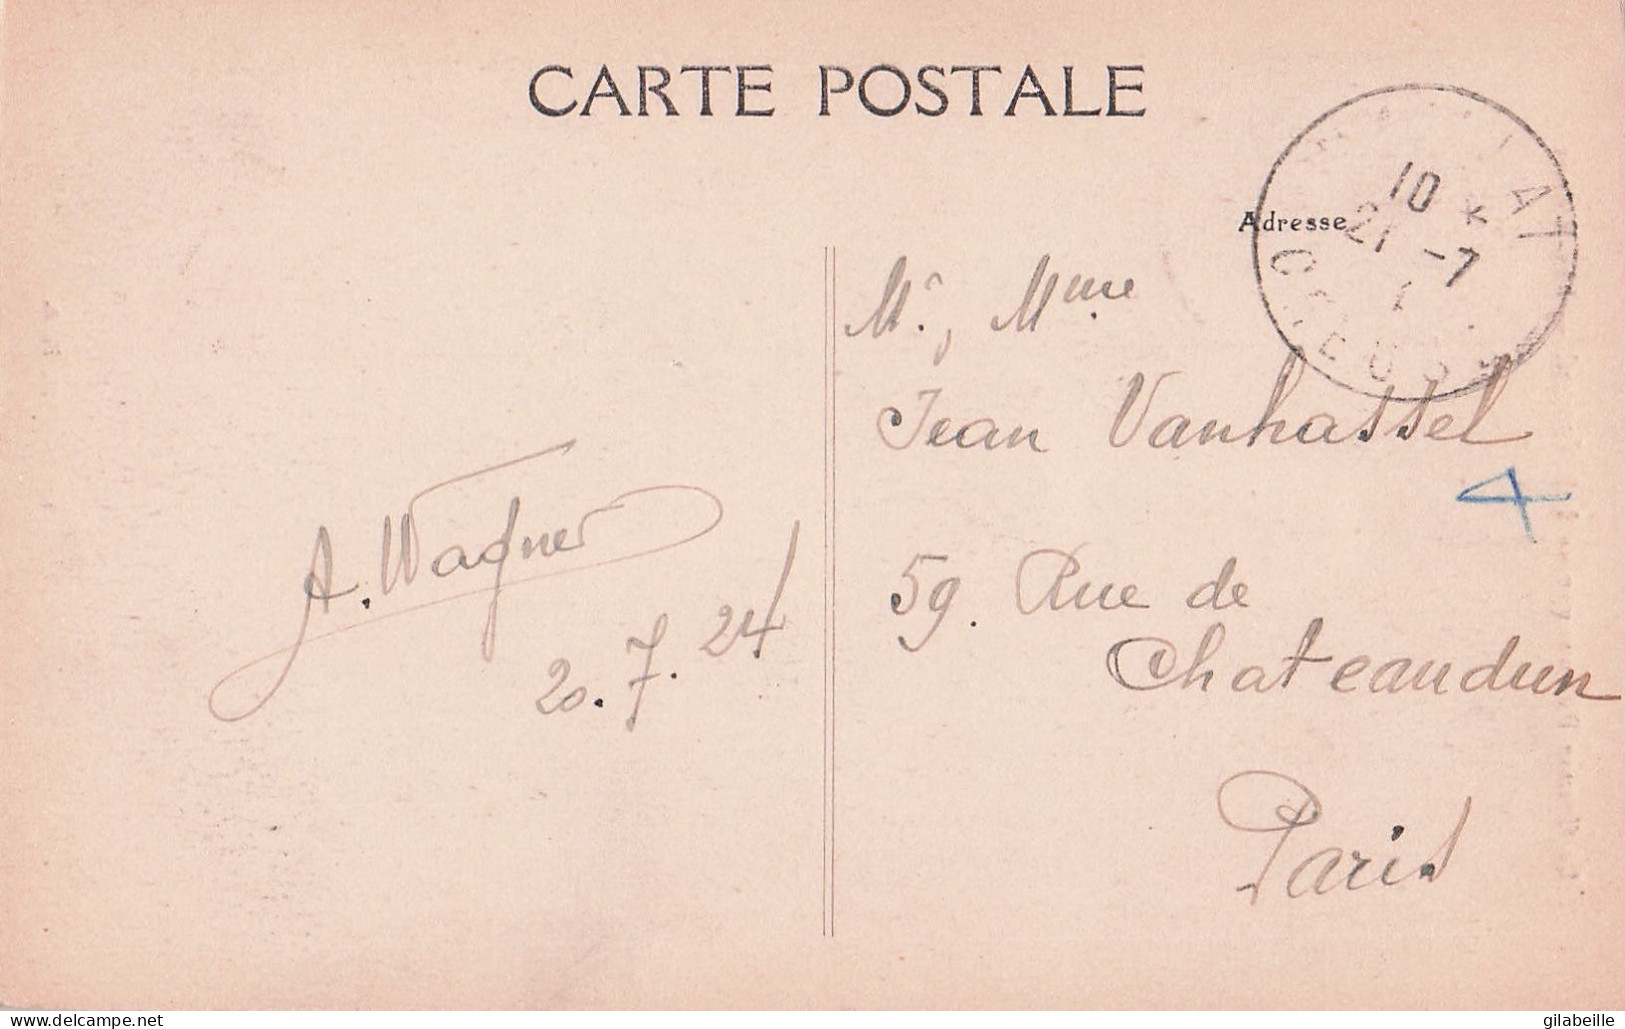 CARTE POSTALE
Adresse
10
21 -7
CREUSE
Mr, Mme
Jean Vanhassel
4
59. Rue de
Chateaudun
Paris
A. Wagner
20.7.24
www.delcampe.net
gilabeille